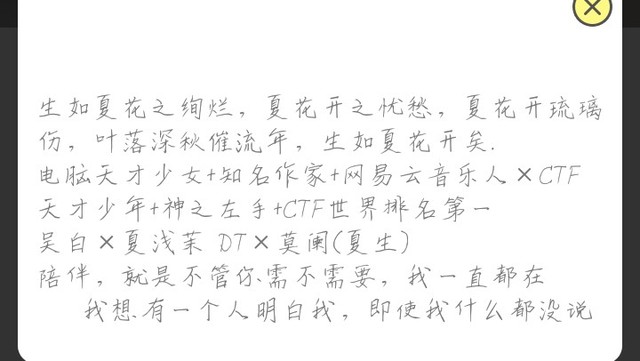 生如夏花之绚烂，夏花开之忧愁，夏花开琉璃
伤，叶落深秋催流年，生如夏花开矣.
电脑天才少女+知名作家+网易云音乐人×CTF
天才少年+神之左手+CTF世界排名第一
吴白×夏浅茉 DT×莫阑(夏生)
陪伴，就是不管你需不需要，我一直都在
我想有一个人明白我，即使我什么都没说